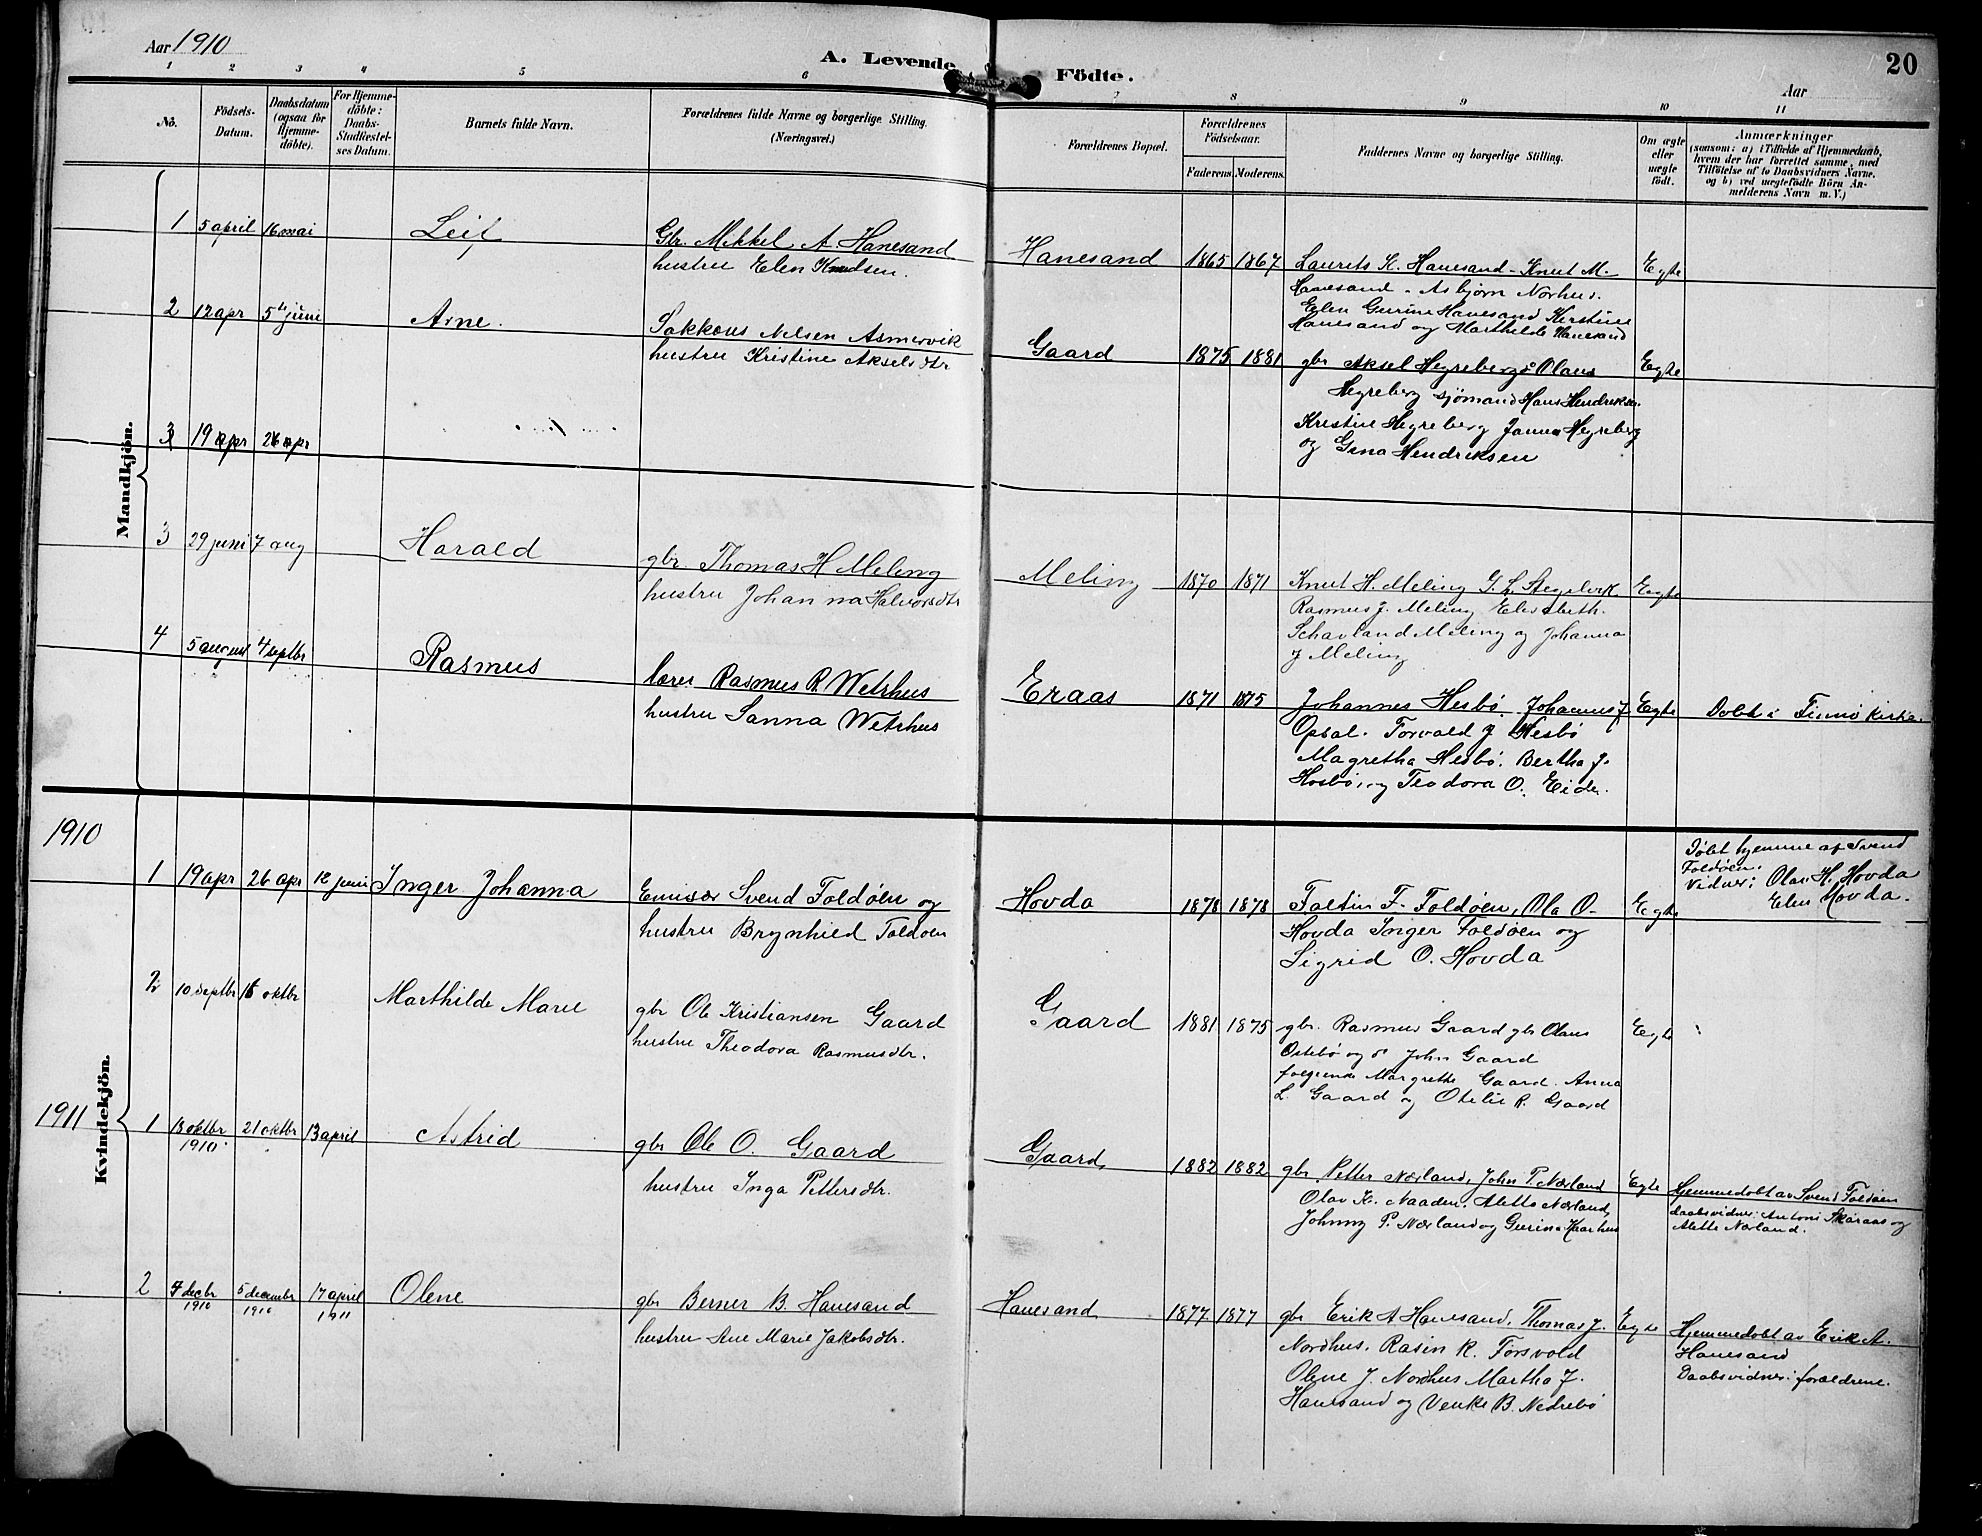 Aar 1910
A. Levende Födte.
20
Aar
1 2 3 4 5 6 7 8 9 10 11
No.
Födsels-Datum.
Daabsdatum (ogsaa for Hjemme-döbte).
For Hjemme-döbte: Daabs-Stadfæstel-ses Datum.
Barnets fulde Navn.
Forældrenes fulde Navne og borgerlige Stilling.
(Næringsvei.)
Forældrenes Bopæl.
Forældrenes Födselsaar.
Faderens. Moderens.
Faddernes Navne og borgerlige Stilling.
Om ægte eller uægte födt.
Anmærkninger
(saasom: a) i Tilfælde af Hjemmedaab,
hvem der har forrettet samme, med
Tilföielse af to Daabsvidners Navne.
og b) ved uægtefödte Börn An-
melderens Navn m. V.)
Mandkjön.
1 5 april 16 mai Leif
Gbr. Mikkel A. Hanesand
hustru Elen Knudsen.
Hanesand 1865 1867
Laurits K. Hanesand - Knut M.
Hanesand - Asbjørn Norhus.
Elen Gurine Hanesand Kirstine
Hanesand og Marthilde Hanesand
Egte
2 12 apr 5te juni Arne.
Sakkeus Nelsen Asmervik
hustru Kristine Akselsdtr
Gaard 1875 1881
gbr Aksel Hegreberg Olaus
Hegreberg sjömand Hans Hendriksen.
Kristine Hegreberg Janna Hegreberg
og Gina Hendriksen
Egte
3 19 apr 26 apr
3 29 juni 7 aug Harald
gbr. Thomas H Meling
hustru Johanna Halvorsdtr
Meling 1870 1871
Knut H. Meling G. L.
Rasmus J. Meling Elisabeth.
Schavland Meling og Johanna
J Meling
Egte
4 5 august 4 septbr Rasmus
lærer Rasmus R. Wetrhus
hustru Sanna Wetrhus
Eraas 1871 1875
Johannes Hesbø. Johannes J
Opsal. Torvald J Hesbø
Magretha Hesbø. Bertha J.
Hesbø, og Teodora O. Eide.
Egte
Døbt i Finnø kirke.
1910
Kvindekjön.
1 19 apr 26 apr 12 juni Inger Johanna
Emisær Svend Foldøen og
hustru Brynhild Foldøen
Hovda 1878 1878
Foltin F. Foldøen, Ola O.
Hovda Inger Foldøen og
Sigrid O. Hovda
Egte
Döbt hjemme af Svend
Foldøen.
Vidner: Olav H. Hovda
Elen Hovda.
2 10 septbr 16 oktbr Marthilde Marie
gbr Ole Kristiansen Gaard
hustru Theodora Rasmusdtr.
Gaard 1881 1875
gbr. Rasmus Gaard gbr Olaus
Østebø og do John Gaard
Margrethe Gaard. Anna
L. Gaard og Otelie R. Gaard
Egte
1911
1 13 oktbr 1910. 21 oktbr 13 april Astrid
gbr Ole O. Gaard
hustru Inga Pettersdtr.
Gaard 1882 1882
gbr. Petter Nærland, John P. Nærland
Olav K. Naaden. Alette Nærland,
Johnny P. Nærland og Gurina Haarhus
Egte
Hjemmedøbt av Svend Foldøen
daabsvidner: Antoni Skaraas og
Alette Nærland.
2 4 decbr 1910 5 december 1910 17 april 1911 Olene
gbr Berner B. Hanesand
hustru Ane Marie Jakobsdtr.
Hanesand 1877 1877
gbr Erik A Hanesand, Thomas J.
Nordhus. Rasin R. Torsvold
Olene J. Nordhus Martha J.
Hanesand og Venke B. Nedrebø
Egte
Hjemmedøbt av Erik A.
Hanesand
Daabsvidner: forældrene.